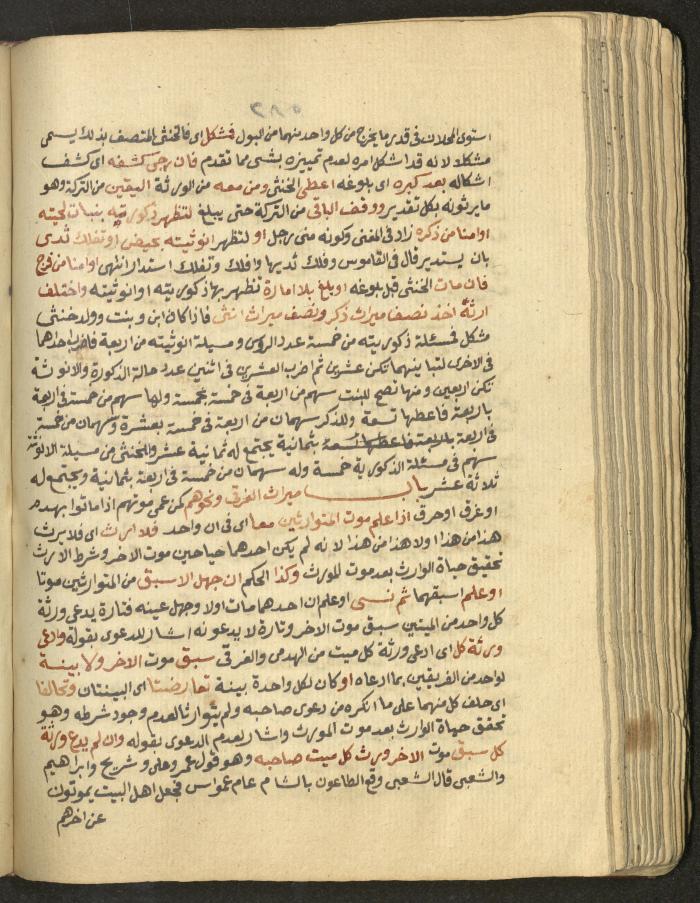 استوى المحلان فى قدر ما يخرج من كل واحد منهما من البول فمشكل اى فالخنثى المتصف بذلك يسمى
مشكلا لانه قد اشكل امره لعدم تمييزه بشى مما تقدم فان رجى كشفه اى كشف
اشكاله بعد كبره اى بلوغه اعطى الخنثى ومن معه من الورثة اليقين من التركة وهو
ما يرثونه بكل تقدير ووقف الباقى من التركة حتى يبلغ لتظهر ذكوريته بنبات لحيته
او امنا من ذكره زاد فى المغنى وكونه منى رجل او لتظهر انوثيته بحيض او تفلك ثدى
بان يستدير قال فى القاموس وفلك ثديها وافلك وتفلك استدار انتهى او امنا من فرج
فان مات الخنثى قبل بلوغه او بلغ بلا امارة تظهر بها ذكوريته او انوثيته واختلف
ارثه اخذ نصف ميراث ذكر ونصف ميراث انثى فاذا كان ابن وبنت وولد خنثى
مشكل فمسئلة ذكوريته من خمسة عدد الروس ومسيلة انوثيته من اربعة فاضرب احدهما
فى الاخرى لتباينهما تكن عشرين ثم اضرب العشرين فى اثنين عدد حالة الذكورة والانوثة
تكن اربعين ومنها تصح للبنت سهم من اربعة فى خمسة بخمسة ولها سهم من خمسة فى اربعة
باربعة فاعطها تسعة وللذكر سهمان من اربعة فى خمسة بعشرة وسهمان من خمسة
فى اربعة بثمانية يجتمع له ثمانية عشر وللخنثى من مسيلة الانوثة
سهم فى مسئلة الذكورية خمسة وله سهمان من خمسة فى اربعة بثمانية ويجتمع له
ثلاثة عشر باب ميراث الغرقى ونحوهم كمن عمى موتهم اذا ماتوا بهدم
او غرق او حرق اذا علم موت المتوارثين معا اى فى ان واحد فلا ارث اى فلا يرث
هذا من هذا ولا هذا من هذا لانه لم يكن احدهما حيا حين موت الاخر وشرط الارث
تحقيق حياة الوارث بعد موت للورث وكذا الحكم ان جهل الاسبق من المتوارثين موتا
او علم اسبقهما ثم نسى او علم ان احدهما مات اولا وجهل عينه فتارة يدعى ورثة
كل واحد من الميتين سبق موت الاخر وتارة لا يدعونه اشار للدعوى بقوله وادعى
ورثة كل اى ادعى ورثة كل ميت من الهدمى والغرقى سبق موت الاخر ولا بينة
لواحد من الفريقين بما ادعاه او كان لكل واحدة بينة تعارضتا اى البينتان وتحالفا
اى حلف كل منهما على ما انكره من دعوى صاحبه ولم يتوارثا لعدم وجود شرطه وهو
تحقق حياة الوارث بعد موت المورث واشار لعدم الدعوى بقوله وان لم يدع ورثة
كل سبق موت الاخر ورث كل ميت صاحبه وهو قول عمر وعلى وشريح وابراهيم
والشعبى قال الشعبى وقع الطاعون بالشام عام عمواس فجعل اهل البيت يموتون
عن اخرهم